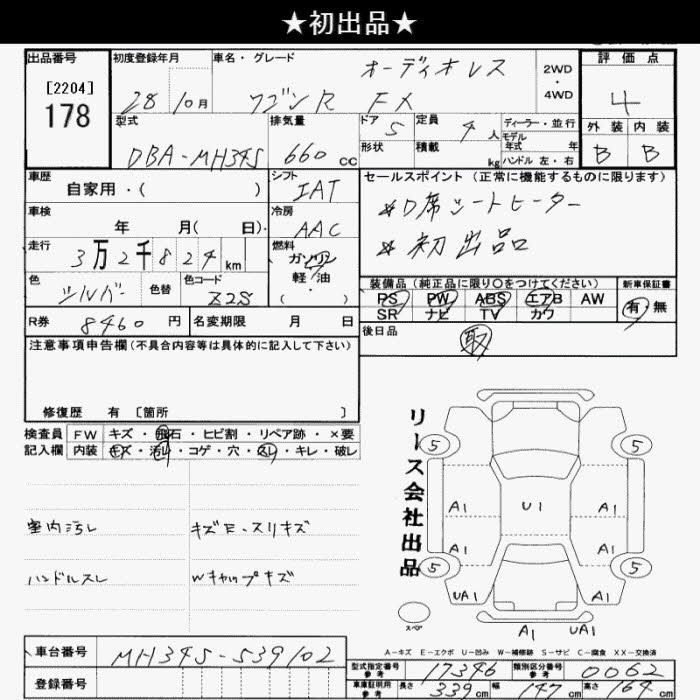 ★初出品★
出品番号 初度登録年月 車名・グレード オーディオレス 2WD・4WD 評価点
[2204] 178 28 10月 ワゴンR FX 4
型式 排気量 ドア 5 定員 4人 ディーラー・並行 外装 内装
DBA-MH34S 660cc 形状 積載 kg モデル年式 年 ハンドル 左・右 B B
車歴 シフト セールスポイント(正常に機能するものに限ります)
自家用・( ) IAT
車検 冷房 ☆D席シートヒーター
年 月( 日) AAC ☆初出品
走行 3万2千824km 燃料 ガソリン 軽油・( )
装備品(純正品に限り〇をつけてください) 新車保証書
色 色替 色コード PS PW ABS エアB AW 有・無
シルバー Z2S SR ナビ TV カワ
R券 8460円 名変期限 月 日 後日品 取
注意事項申告欄(不具合内容等は具体的に記入して下さい)
修復歴 有 [箇所 ]
検査員 FW キズ・飛石・ヒビ割・リペア跡・×要
記入欄 内装 キズ・汚レ・コゲ・穴・スレ・キレ・破レ
リース会社出品
5 5
A1 U1 A1
室内汚レ キズE・スリキズ
A1 A1
ハンドルスレ Wキャップキズ
5 5
UA1 A1
スペア A1 UA1
A-キズ E-エクボ U-凹み W-補修跡 S-サビ C-腐食 XX-交換済
車台番号 MH34S-539102
型式指定番号 参考 17346 類別区分番号 参考 0062
登録番号 車庫証明用 参考 長さ 339cm 幅 147cm 高さ 164cm